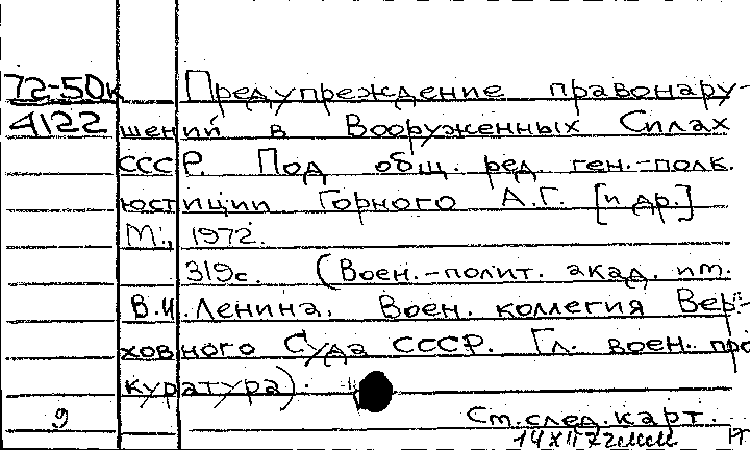 72-50к Предупреждение правонару-
4122 шений в Вооруженных Силах
СССР. Под общ. ред. ген.-полк.
юстиции Горного А.Г. [и др.]
М., 1972.
319с. (Воен.-полит. акад. им.
В.И. Ленина, Воен. коллегия Вер-
ховного Суда СССР. Гл. воен. про
куратура).
9 См. след. карт.
14 XII 72